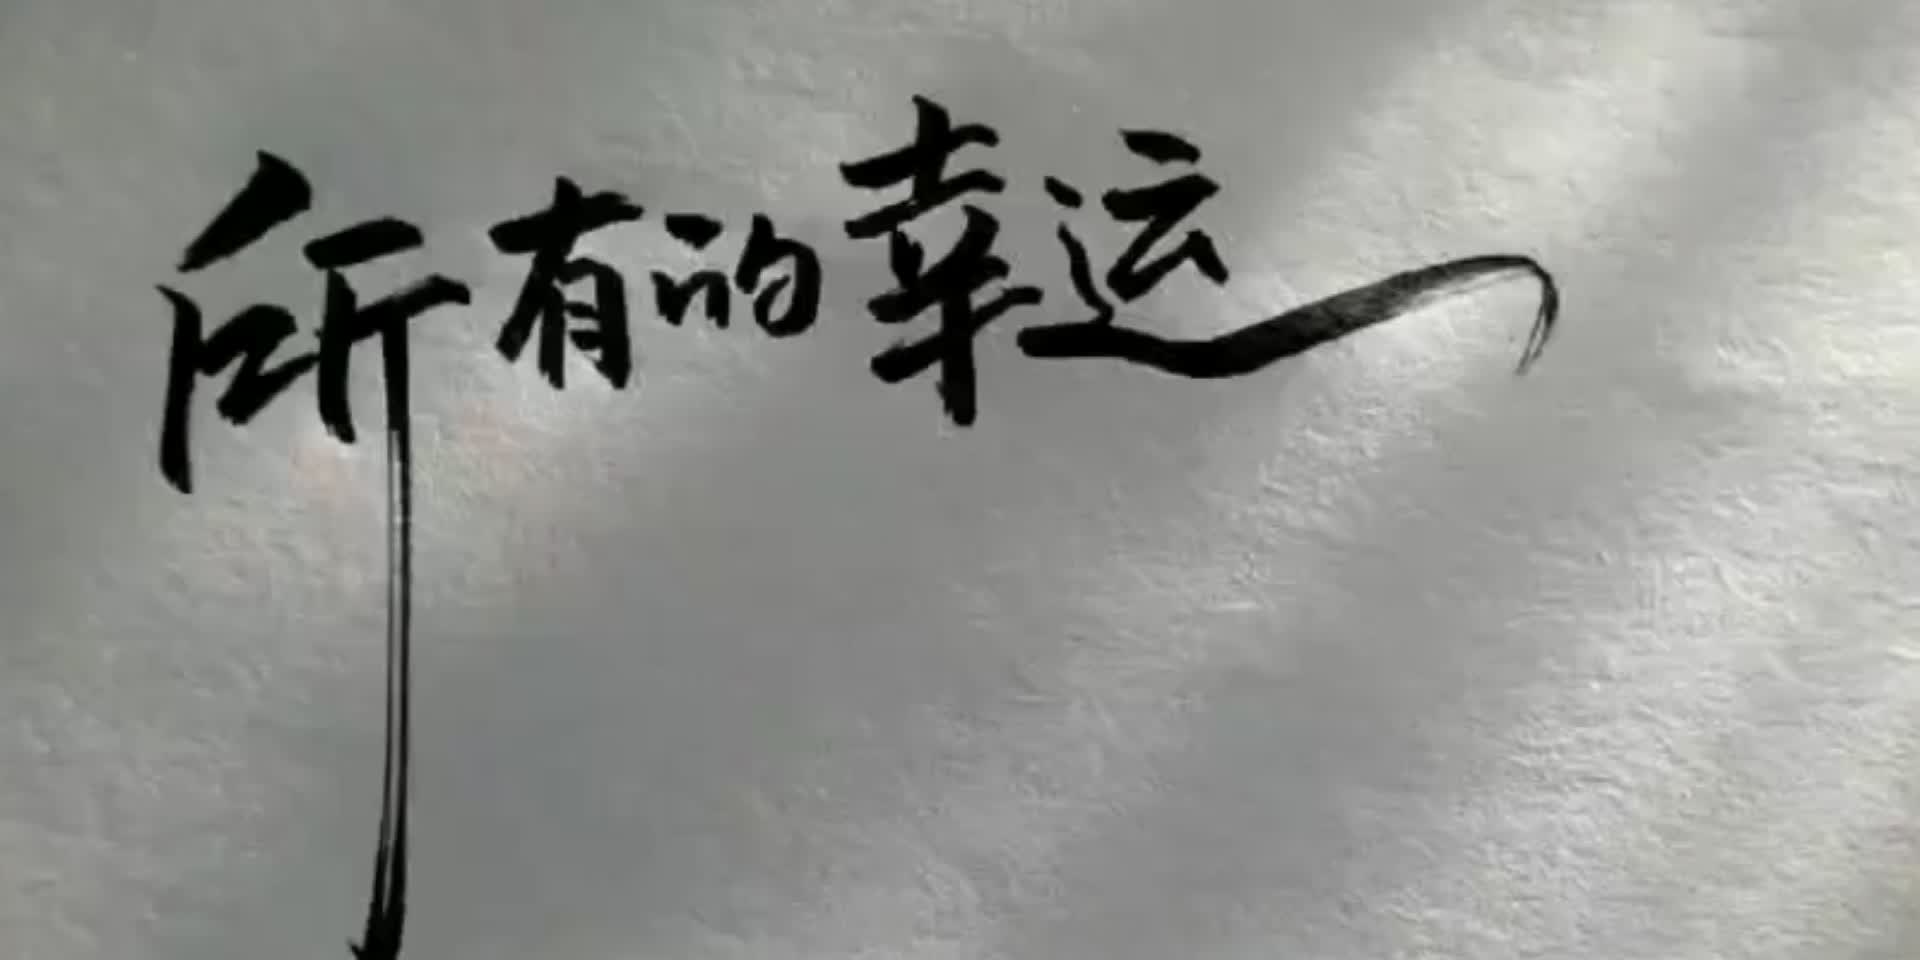 所有的幸运